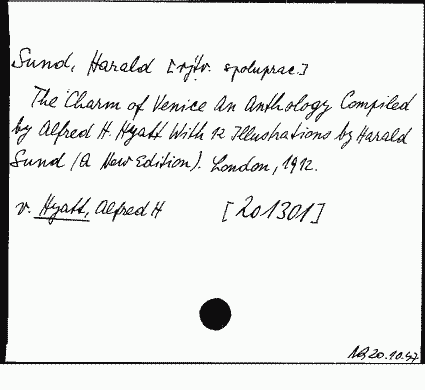 Sund, Harald [výtv. spoluprac.]
The Charm of Venice An Anthology Compiled
by Alfred H. Hyatt With 12 Illustrations by Harald
Sund (A New Edition). London, 1912.
v. Hyatt, Alfred H [201301]
20.10.47